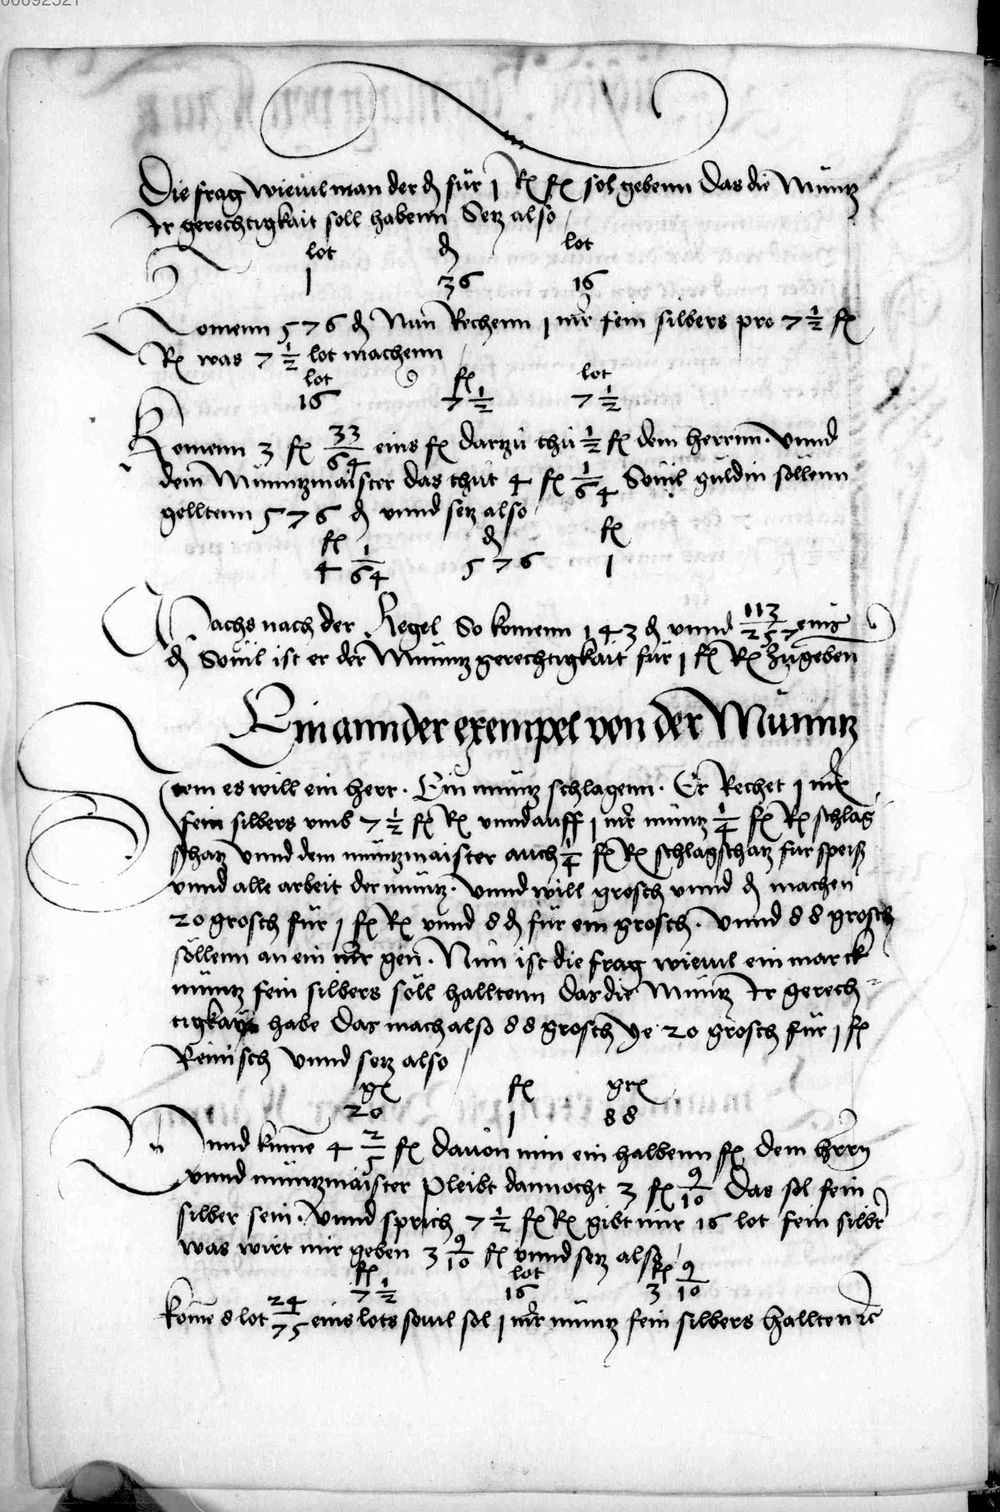 00092521
Die frag Wieuil man der ₰ für 1 R fl sol gebenn Das die Müntz
Ir gerechtigkait soll habenn Setz also
lot ₰ lot
1 36 16
Komenn 576 ₰ Nun Rechenn 1 mr fein silbers pro 7 1/2 fl
R was 7 1/2 lot machenn
lot fl lot
16 7 1/2 7 1/2
Komenn 3 fl 33/64 eins fl dartzu thu 1/2 fl dem herrnn. Vnnd
dem Münntzmaister das thut 4 fl 1/64 Souil guldin sollenn
gelltenn 576 ₰ vnnd setz also
fl ₰ fl
4 1/64 576 1
Machs nach der Regel So komenn 143 ₰ vnnd 113/257 eins
₰ Souil ist er der Müntz gerechtigkait für 1 fl R zugeben
Ein annder exempel von der Münntz
Item es will ein herr. Ein müntz schlagenn. Er Rechet 1 mr
fein silbers vmb 7 1/2 fl R vnnd auff 1 mr müntz 1/4 fl R schlag
schatz vnnd dem müntzmaister auch 1/4 fl R schlagschatz für speiß
vnnd alle arbeit der müntz. Vnnd will grosch vnnd ₰ machen
20 grosch für 1 fl R vnnd 8 ₰ für ein grosch. Vnnd 88 grosch
söllenn an ein mr gen. Nun ist die frag wieuil ein marck
müntz fein silbers soll halltenn das die Müntz Ir gerech
tigkayt habe Das mach also 88 grosch ye 20 grosch für 1 fl
Reinisch Vnnd setz also
gr fl gr
20 1 88
Vnnd kume 4 2/5 fl dauon nim ein halbenn fl dem herrn
vnnd müntzmaister Pleibt dannocht 3 fl 9/10 Das sol fein
silber sein. Vnnd sprich 7 1/2 fl R gibt mir 16 lot fein silber
was wirt mir geben 3 9/10 fl vnnd setz also
fl lot fl
7 1/2 16 3 9/10
Kome 8 lot 24/75 eins lots souil sol 1 mr müntz fein silbers hallten rc